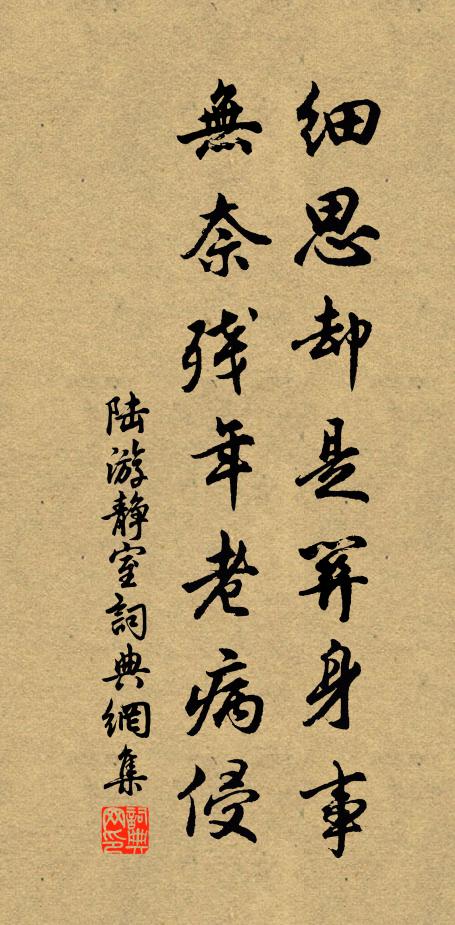 細思却是關身事
無奈殘年老病侵
陆游静室詞典網集
詞典網印